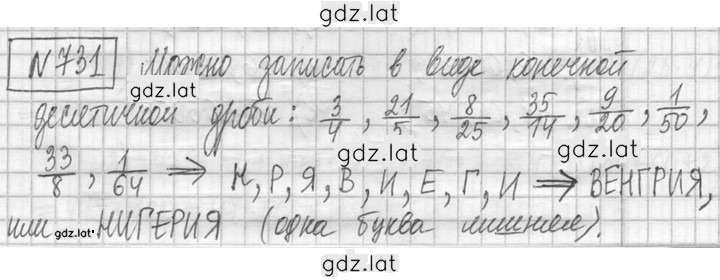 gdz.lat
№731 Можно записать в виде конечной
gdz.lat
десятичной дроби: 3/4, 21/5, 8/25, 35/14, 9/20, 1/50,
gdz.lat gdz.lat
33/8, 1/64 ⇒ Н, Р, Я, В, И, Е, Г, И ⇒ ВЕНГРИЯ,
или gdz.lat НИГЕРИЯ (одна буква лишняя).
gdz.lat